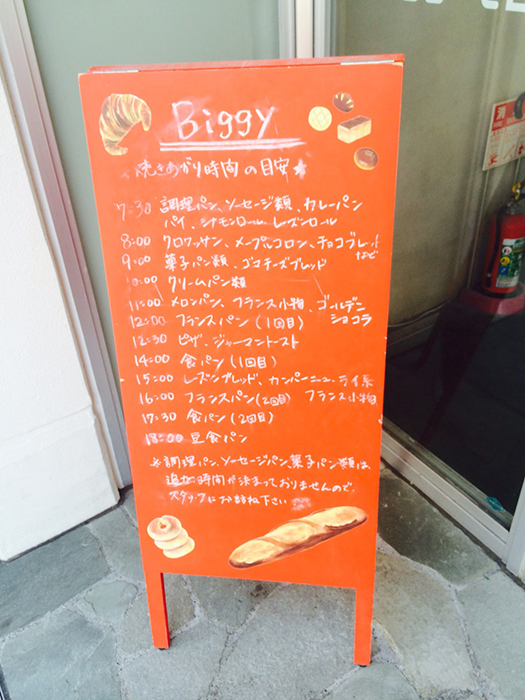 Biggy
焼きあがり時間の目安
7:30 調理パン、ソーセージ類、カレーパン
パイ、シナモンロール、レーズンロール
8:00 クロワッサン、メープルコロン、チョコブレッド
など
9:00 菓子パン類、ゴコチーズブレッド
10:00 クリームパン類
11:00 メロンパン、フランス小物、ゴールデン
ショコラ
12:00 フランスパン(1回目)
12:30 ピザ、ジャーマントースト
14:00 食パン(1回目)
15:00 レーズンブレッド、カンパーニュ、ライ系
16:00 フランスパン(2回目) フランス小物
17:30 食パン(2回目)
18:00 豆食パン
※調理パン、ソーセージパン、菓子パン類は、
追加時間が決まっておりませんので、
スタッフにお訪ね下さい